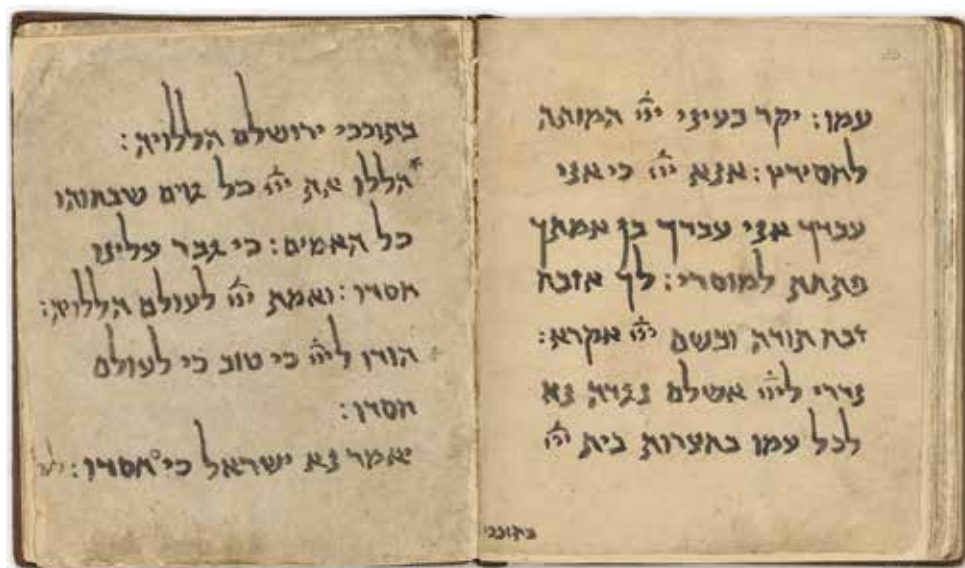 עמו: יקר בעיני ייי המותה
לחסידיו: אנא ייי כי אני
עבדך אני עבדך בן אמתך
פתחת למוסרי: לך אזבח
זבח תודה ובשם ייי אקרא:
נדרי לייי אשלם נגדה נא
לכל עמו בחצרות בית ייי
בתוככי
בתוככי ירושלם הללויה:
*הללו את ייי כל גוים שבחוהו
כל האמים: כי גבר עלינו
חסדו: ואמת ייי לעולם הללויה:
הודו לייי כי טוב כי לעולם
חסדו:
יאמר נא ישראל כי°חסדו: